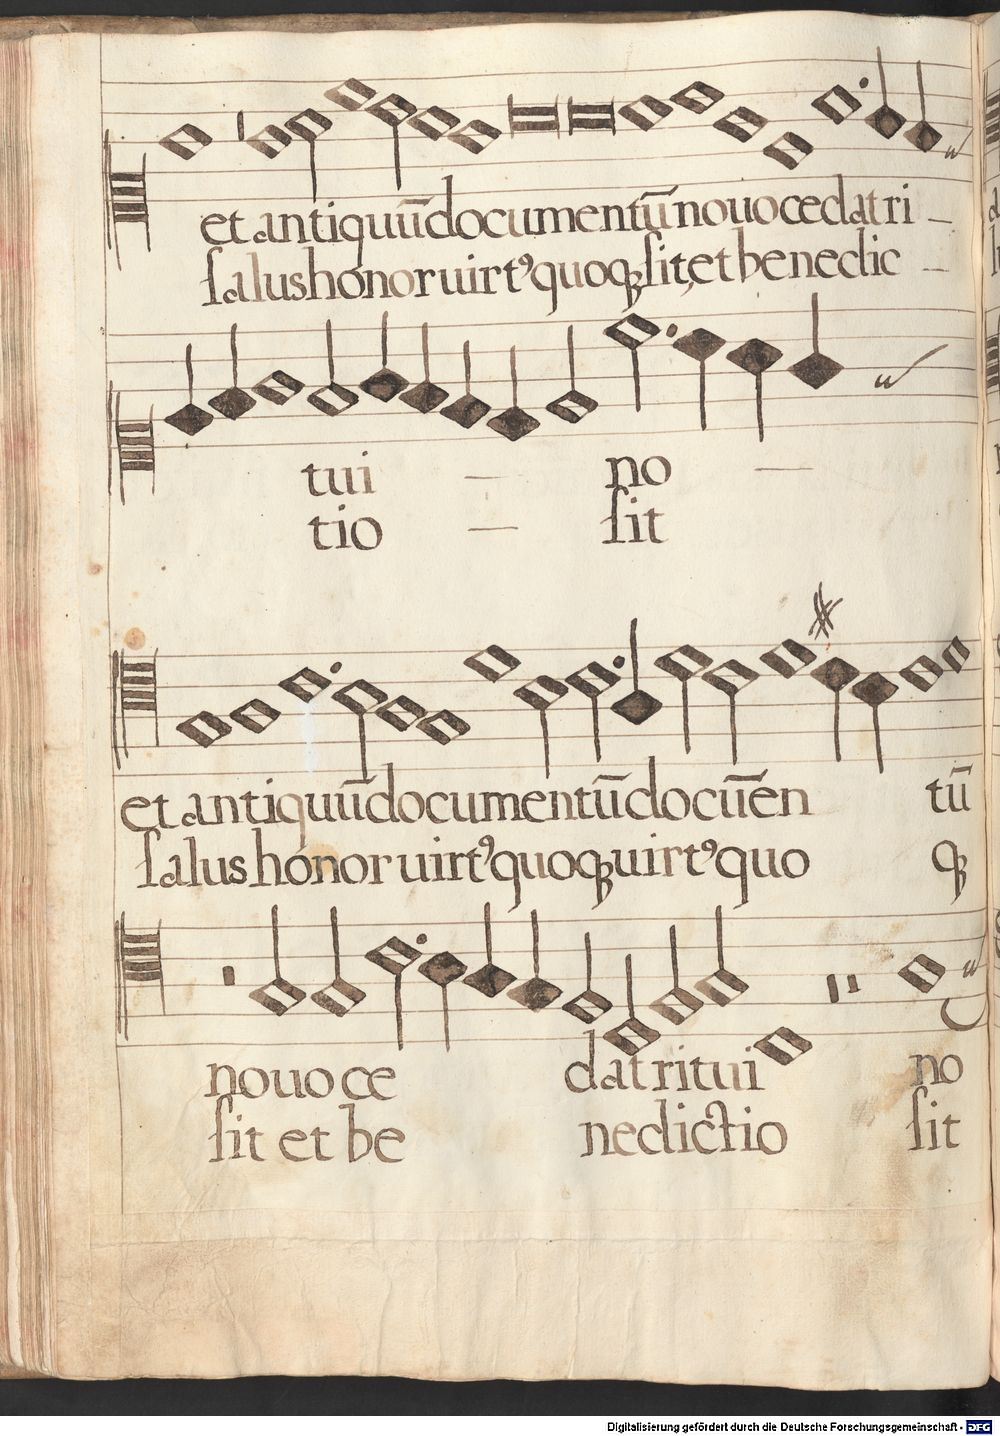 et antiquūdocumentū nouo cedat ri
salus honor uirtꝰ quoqꝫ sit, et benedic
tui no
tio sit
et antiquūdocumentūdocūen tū
salus honor uirtꝰ quoqꝫ uirtꝰ quo qꝫ
nouo ce dat ritui no
sit et be nedictio sit
Digitalisierung gefördert durch die Deutsche Forschungsgemeinschaft - DFG